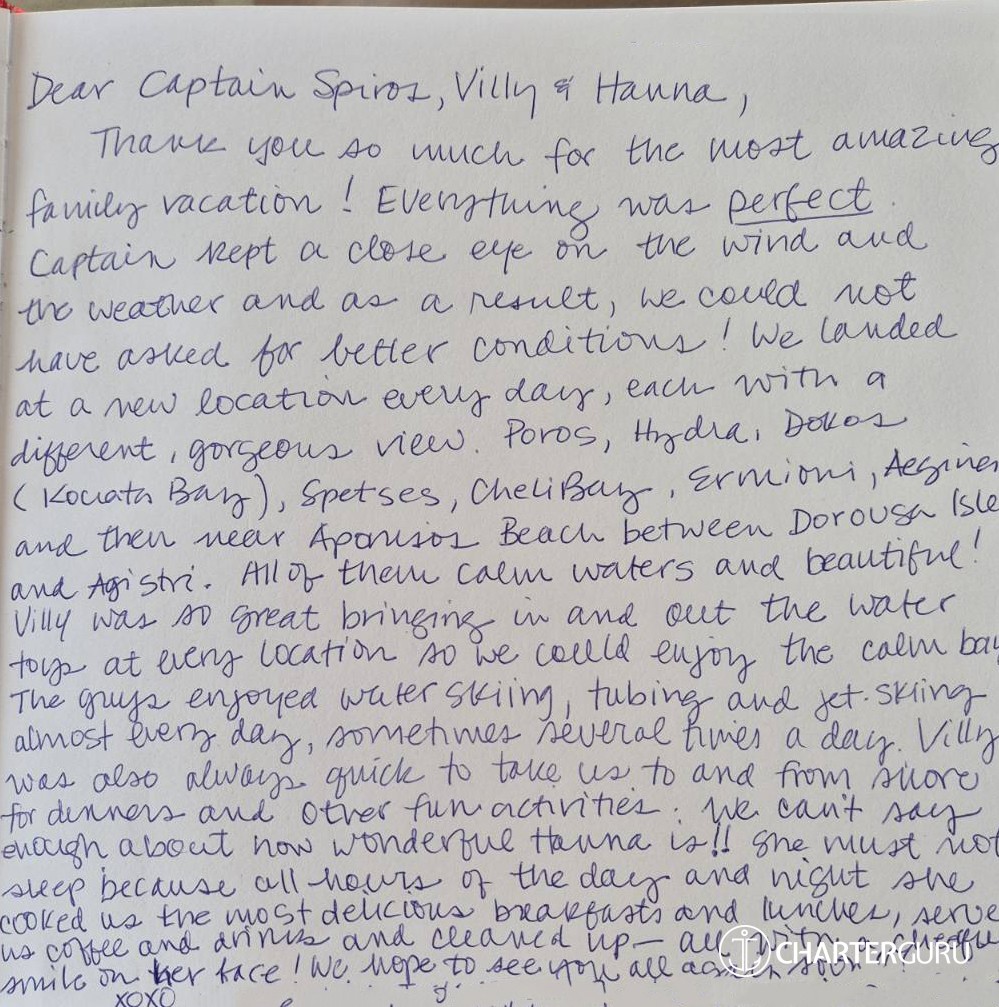 Dear Captain Spiros, Villy & Hanna,
Thank you so much for the most amazing
family vacation! Everything was perfect.
Captain kept a close eye on the wind and
the weather and as a result, we could not
have asked for better conditions! We landed
at a new location every day, each with a
different, gorgeous view. Poros, Hydra, Dokos
(Kouata Bay), Spetses, Cheli Bay, Ermioni, Aegina
and then near Aponisos Beach between Dorousa Isle
and Agistri. All of them calm waters and beautiful!
Villy was so great bringing in and out the water
toys at every location so we could enjoy the calm bay
The guys enjoyed water skiing, tubing and jet-skiing
almost every day, sometimes several times a day. Villy
was also always quick to take us to and from shore
for dinners and other fun activities. We can't say
enough about how wonderful Hanna is!! She must not
sleep because all hours of the day and night she
cooked us the most delicious breakfasts and lunches, serve
us coffee and drinks and cleaned up - all with
smile on her face! We hope to see you all again soon
xoxo
CHARTERGURU